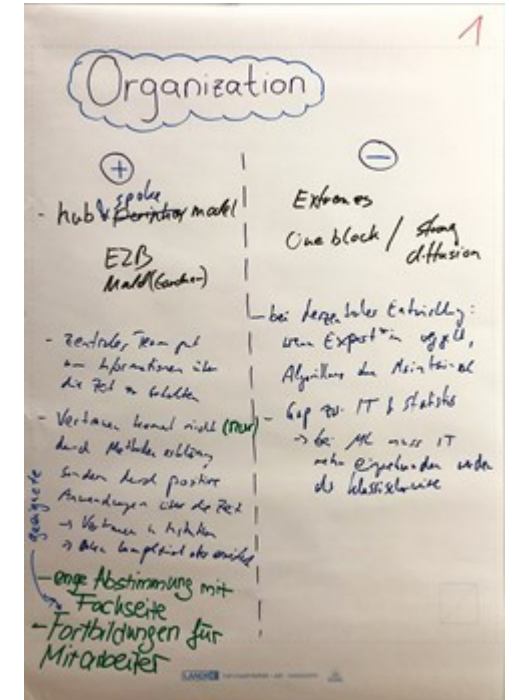 1
Organization
+
spoke
- hub & Periphery model
EZB
- zentrales Team gut
um Informationen über
die Zeit zu behalten
- Vertrauen kommt nicht (nur)
durch Methodenerklärung
sondern durch positive
Anwendungen über die Zeit
→ Vertrauen in
geeignete
- enge Abstimmung mit
Fachseite
- Fortbildungen für
Mitarbeiter
−
Extremes
One block / strong
diffusion
bei dezentraler Entwicklung:
wenn Expert*in weggeht,
Algorithmus
- Gap zw. IT & Statistik
→ bei ML muss IT
mehr eingebunden werden
als klassischerweise